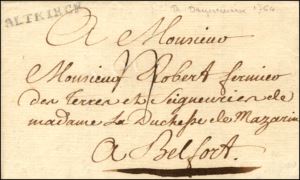 ALTKIRCH
A Monsieur
Monsieur Robert fermier
des Terres et Seigneuries de
madame La Duchesse de Mazarin
A Belfort.